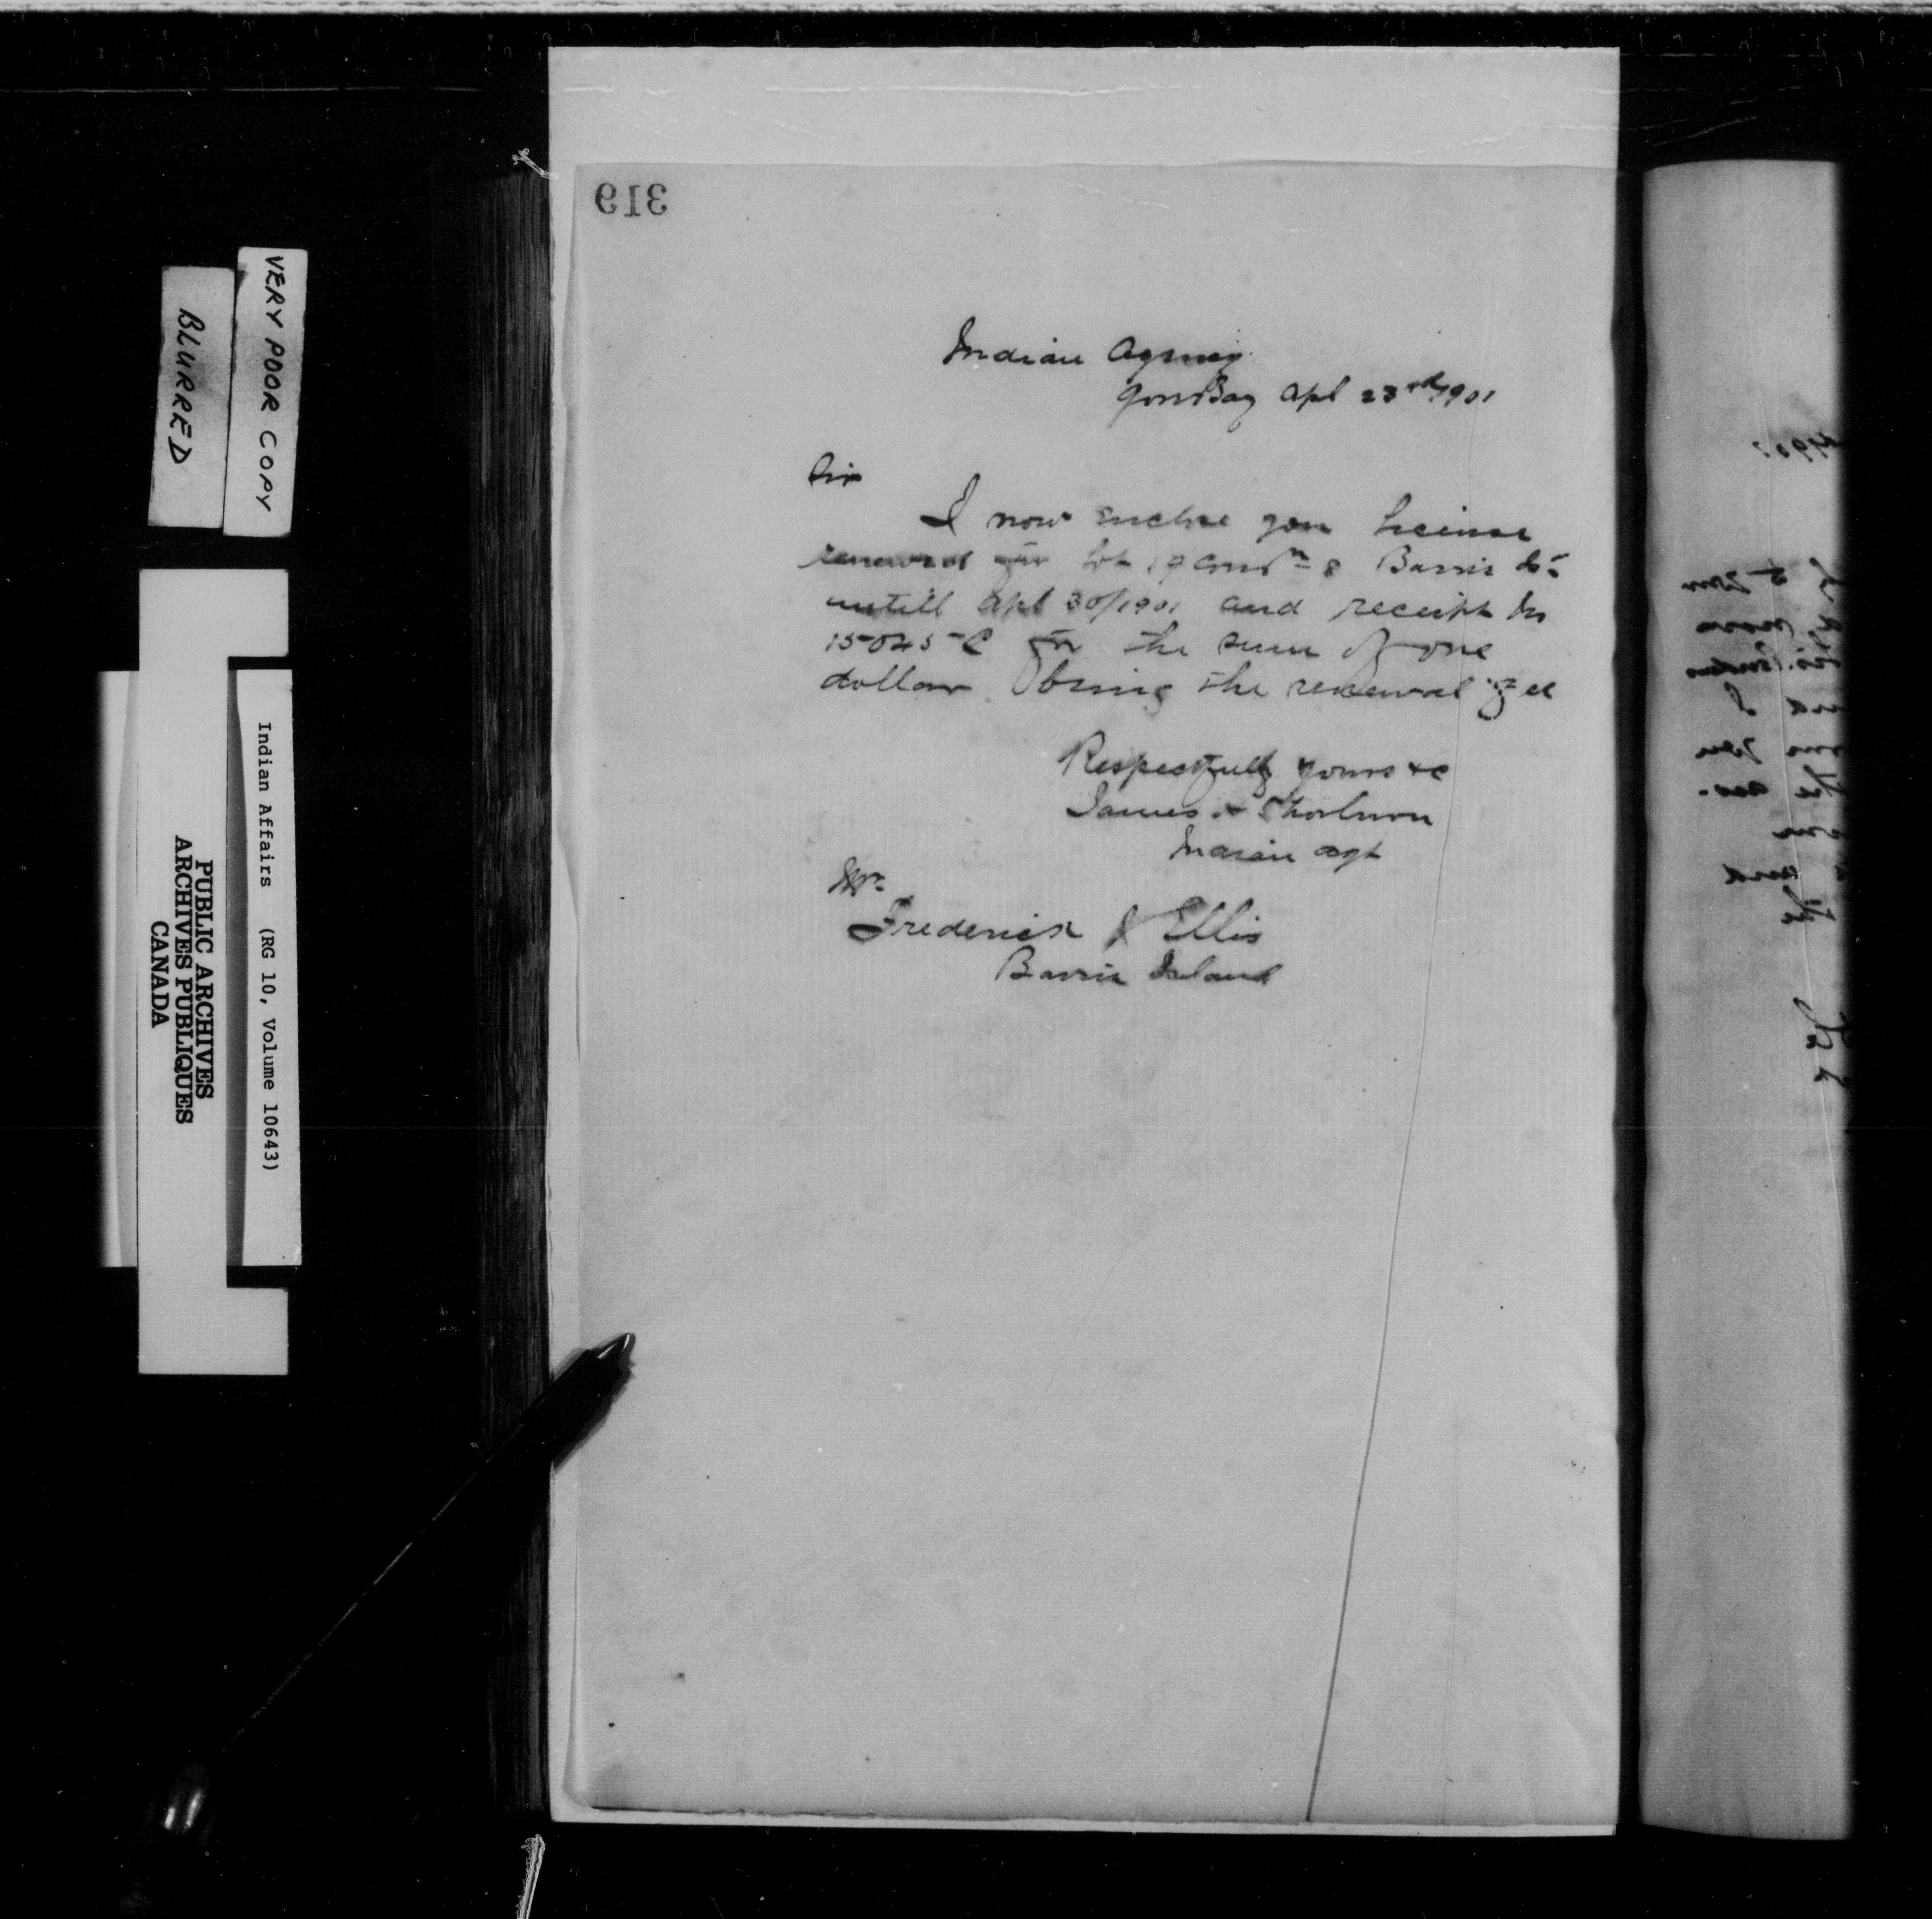 319
Indian Agency
Gore Bay Apl 23rd 1901
Sir
I now enclose you License
renewal for Lot 19 Conn 8 Barrie Is
untill Apl 30/1901 and receipt No
15045 C for the sum of one
dollar being the renewal fee
Respectfully yours &c
James
Indian Agt
Mr
Frederick J Ellis
Barrie Island
VERY POOR COPY
BLURRED
Indian Affairs (RG 10, Volume 10643)
PUBLIC ARCHIVES
ARCHIVES PUBLIQUES
CANADA